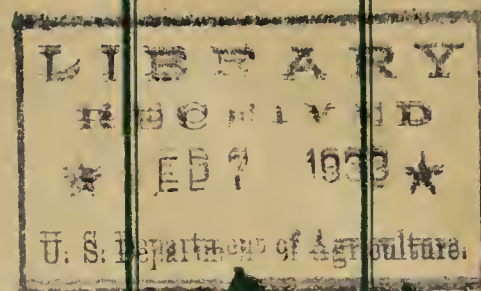 LIBRARY
RECEIVED
★ FEB ★
U. S. Department of Agriculture.